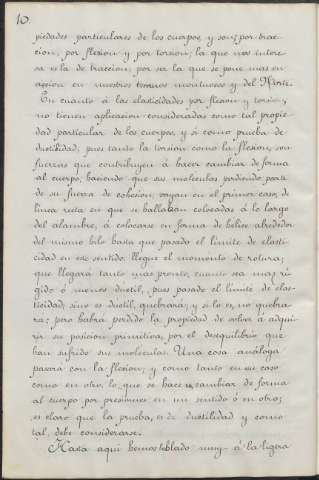 10.
piedades particulares de los cuerpos y son; por trac-
cion, por flexion y por torsion; la que nos intere-
sa es la de traccion, por ser la que se pone mas en
accion en nuestros y del Norte.
En cuanto á las elasticidades por flexion y torsion,
no tienen aplicacion consideradas como tal propie-
dad particular de los cuerpos, y si como prueba de
ductilidad, pues tanto la torsion como la flexion, son
fuerzas que contribuyen á hacer cambiar de forma
al cuerpo, haciendo que sus moleculas perdiendo parte
de su fuerza de cohesion, vayan en el primer caso, de
linea recta en que se hallaban colocadas á lo largo
del alambre, á colocarse en forma de helice alrededor
del mismo hilo hasta que pasado el limite de elasti-
cidad en ese sentido llegue el momento de rotura;
que llegará tanto mas pronto, cuanto sea mas ri-
gido ó menos ductil, pues pasado el limite de elas-
ticidad, sino es ductil, quebrará; y si lo es, no quebra-
rá; pero habrá perdido la propiedad de volver á adqui-
rir su posicion primitiva, por el desequilibrio que
han sufrido sus moleculas. Una cosa análoga
pasará con la flexion; y como tanto en un caso
como en otro, lo que se hace es cambiar de forma
al cuerpo por presiones en un sentido ó en otro;
es claro que la prueba, es de ductilidad y como
tal, debe considerarse.
Hasta aqui hemos hablado muy á la ligera